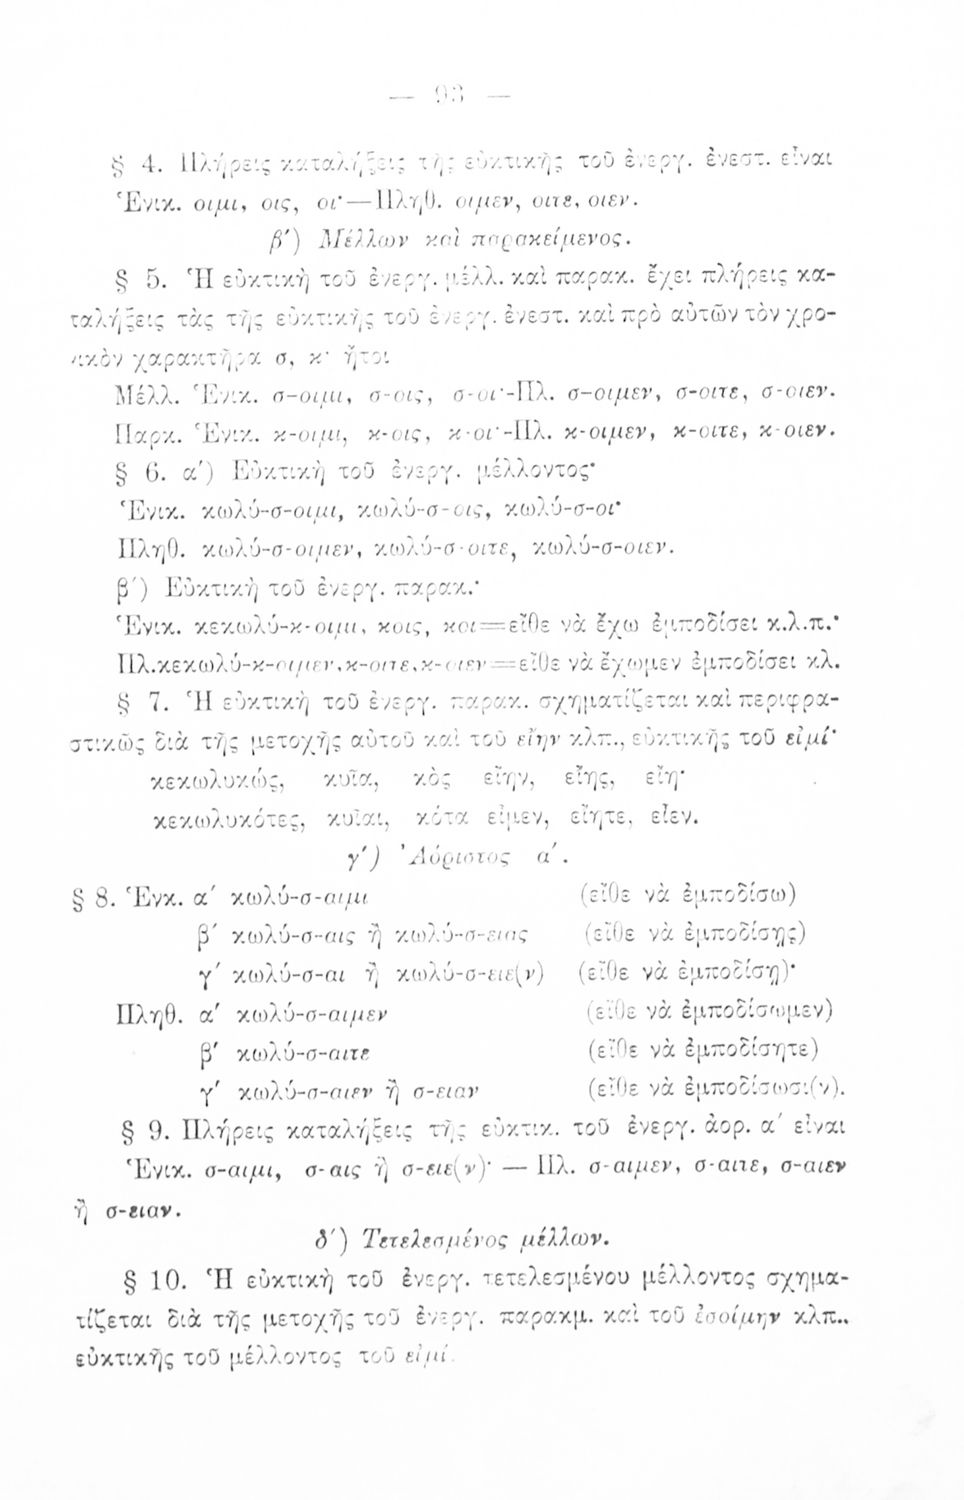 — 93 —
§ 4. Πλήρεις καταλήξεις τῆς εὐκτικῆς τοῦ ἐνεργ. ἐνεστ. εἶναι
Ἑνικ. οιμι, οις, οι· — Πληθ. οιμεν, οιτε, οιεν.
β′) Μέλλων καὶ παρακείμενος.
§ 5. Ἡ εὐκτικὴ τοῦ ἐνεργ. μέλλ. καὶ παρακ. ἔχει πλήρεις κα-
ταλήξεις τὰς τῆς εὐκτικῆς τοῦ ἐνεργ. ἐνεστ. καὶ πρὸ αὐτῶν τὸν χρο-
νικὸν χαρακτῆρα σ, κ· ἤτοι
Μέλλ. Ἑνικ. σ-οιμι, σ-οις, σ-οι·-Πλ. σ-οιμεν, σ-οιτε, σ-οιεν.
Παρκ. Ἑνικ. κ-οιμι, κ-οις, κ-οι·-Πλ. κ-οιμεν, κ-οιτε, κ-οιεν.
§ 6. α′) Εὐκτικὴ τοῦ ἐνεργ. μέλλοντος·
Ἑνικ. κωλύ-σ-οιμι, κωλύ-σ-οις, κωλύ-σ-οι·
Πληθ. κωλύ-σ-οιμεν, κωλύ-σ-οιτε, κωλύ-σ-οιεν.
β′) Εὐκτικὴ τοῦ ἐνεργ. παρακ.·
Ἑνικ. κεκωλύ-κ-οιμι, κοις, κοι=εἴθε νὰ ἔχω ἐμποδίσει κ.λ.π.·
Πλ.κεκωλύ-κ-οιμεν,κ-οιτε,κ-οιεν=εἴθε νὰ ἔχωμεν ἐμποδίσει κλ.
§ 7. Ἡ εὐκτικὴ τοῦ ἐνεργ. παρακ. σχηματίζεται καὶ περιφρα-
στικῶς διὰ τῆς μετοχῆς αὐτοῦ καὶ τοῦ εἴην κλπ., εὐκτικῆς τοῦ εἰμί·
κεκωλυκώς, κυῖα, κὸς εἴην, εἴης, εἴη·
κεκωλυκότες, κυῖαι, κότα εἶμεν, εἴητε, εἶεν.
γ′) Ἀόριστος α′.
§ 8. Ἑνκ. α′ κωλύ-σ-αιμι (εἴθε νὰ ἐμποδίσω)
β′ κωλύ-σ-αις ἢ κωλύ-σ-ειας (εἴθε νὰ ἐμποδίσῃς)
γ′ κωλύ-σ-αι ἢ κωλύ-σ-ειε(ν) (εἴθε νὰ ἐμποδίσῃ)·
Πληθ. α′ κωλύ-σ-αιμεν (εἴθε νὰ ἐμποδίσωμεν)
β′ κωλύ-σ-αιτε (εἴθε νὰ ἐμποδίσητε)
γ′ κωλύ-σ-αιεν ἢ σ-ειαν (εἴθε νὰ ἐμποδίσωσι(ν).
§ 9. Πλήρεις καταλήξεις τῆς εὐκτικ. τοῦ ἐνεργ. ἀορ. α′ εἶναι
Ἑνικ. σ-αιμι, σ-αις ἢ σ-ειε(ν)· — Πλ. σ-αιμεν, σ-αιτε, σ-αιεν
ἢ σ-ειαν.
δ′) Τετελεσμένος μέλλων.
§ 10. Ἡ εὐκτικὴ τοῦ ἐνεργ. τετελεσμένου μέλλοντος σχημα-
τίζεται διὰ τῆς μετοχῆς τοῦ ἐνεργ. παρακμ. καὶ τοῦ ἐσοίμην κλπ..
εὐκτικῆς τοῦ μέλλοντος τοῦ εἰμί.